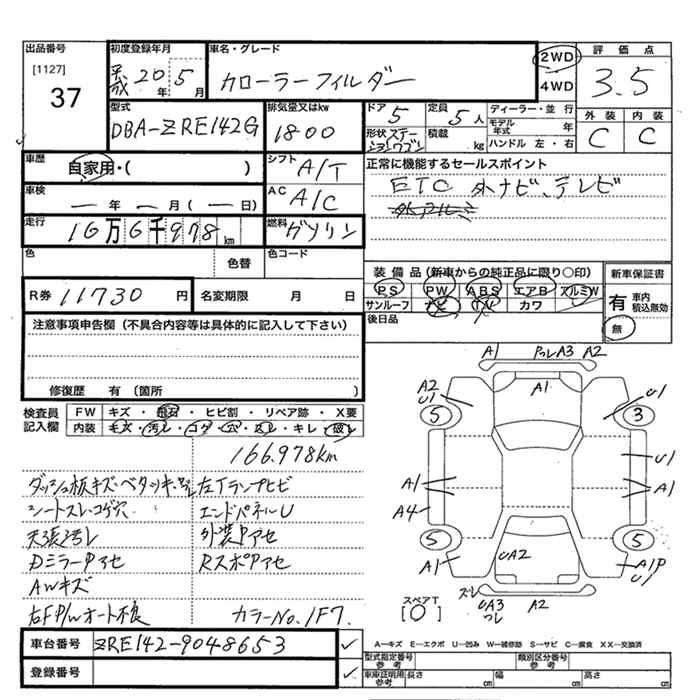 出品番号 初度登録年月 車名・グレード 2WD 評価点
[1127] 平成20年5月 カローラーフィルダー 4WD 3.5
37
型式 排気量又はkw ドア 5 定員 5人 ディーラー・並行 外装 内装
DBA-ZRE142G 1800 形状 ステーションワゴン 積載 kg モデル年式 年 C C
ハンドル 左・右
車歴 自家用・( ) シフト A/T 正常に機能するセールスポイント
車検 ー年ー月(ー日) AC A/C ETC 外ナビ、テレビ
走行 16万6千978km 燃料 ガソリン
色 色替 色コード
装備品(新車からの純正品に限り○印) 新車保証書
R券 11730円 名変期限 月 日 PS PW ABS エアB アルミW 有 車内積込無効
サンルーフ ナビ TV カワ 無
注意事項申告欄(不具合内容等は具体的に記入して下さい) 後日品
修復歴 有(箇所 )
検査員記入欄 FW キズ・飛石・ヒビ割・リペア跡・X要
内装 キズ・汚レ・コゲ・穴・スレ・キレ・破レ
166.978km
ダッシュ板キズ・ベタツキ 左Tランプヒビ
シートスレ・コゲ穴 エンドパネルU
天張汚レ 外装Pアセ
DミラーPアセ RスポPアセ
AWキズ
右F P/Wオート不良 カラーNo.1F7.
A1 フレA3 A2
A1
A2 U1 5 3 U1
U1
A1 A1
A4
5 5
A1 UA2 A1P U1
スペアT [0] ズレ UA3 フレ A2
車台番号 ZRE142-9048653
A―キズ E―エクボ U―凹み W―補修跡 S―サビ C―腐食 XX―交換済
登録番号 型式指定番号 参考 類別区分番号 参考
車庫証明用 参考 長さ cm 幅 cm 高さ cm